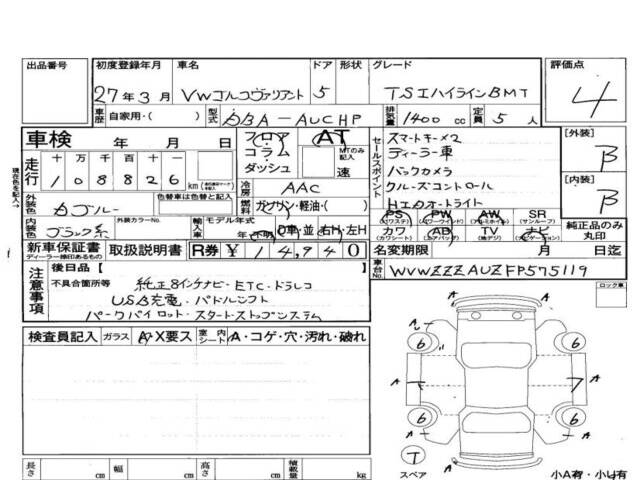 出品番号
初度登録年月
27年3月
車名
VWゴルフヴァリアント
ドア
5
形状
グレード
TSIハイラインBMT
評価点
4
車歴
自家用・( )
型式
DBA-AUCHP
排気量
1400 cc
定員
5 人
車検 年 月 日
走行
十万千百十一
108826 km
フロア
コラム
ダッシュ
AT
MTのみ記入
速
冷房
AAC
燃料
ガソリン・軽油・( )
外装色
色替車は色替と記入
内装色
ブラック系
外装カラーNo.
輸入車
モデル年式
D車・並 右H・左H
セールスポイント
スマートキー×2
ディーラー車
バックカメラ
クルーズコントロール
HIDオートライト
PS (パワステ)
PW (パワーウインド)
AW (アルミホイル)
SR (サンルーフ)
カワ (カワシート)
AB (エアバッグ)
TV (地デジ)
ナビ (ナビゲーション)
純正品のみ
丸印
[外装]
B
[内装]
B
新車保証書
ディーラー捺印あるもの
取扱説明書
R券
¥14,940
名変期限 月 日迄
車台No.
WVWZZZAUZFP575119
注意事項
後日品【 】
不具合箇所等
純正8インチナビ・ETC・ドラレコ
USB充電・パドルシフト
パークパイロット・スタートストップシステム
検査員記入
ガラス
A・X要ス
室内シート
A・コゲ・穴・汚れ・破れ
ロック車
A
A
A
A
A
A
6
6
6
6
T
スペア
小A有・小U有
長さ cm
幅 cm
高さ cm
積載量 kg
現在色を記入→